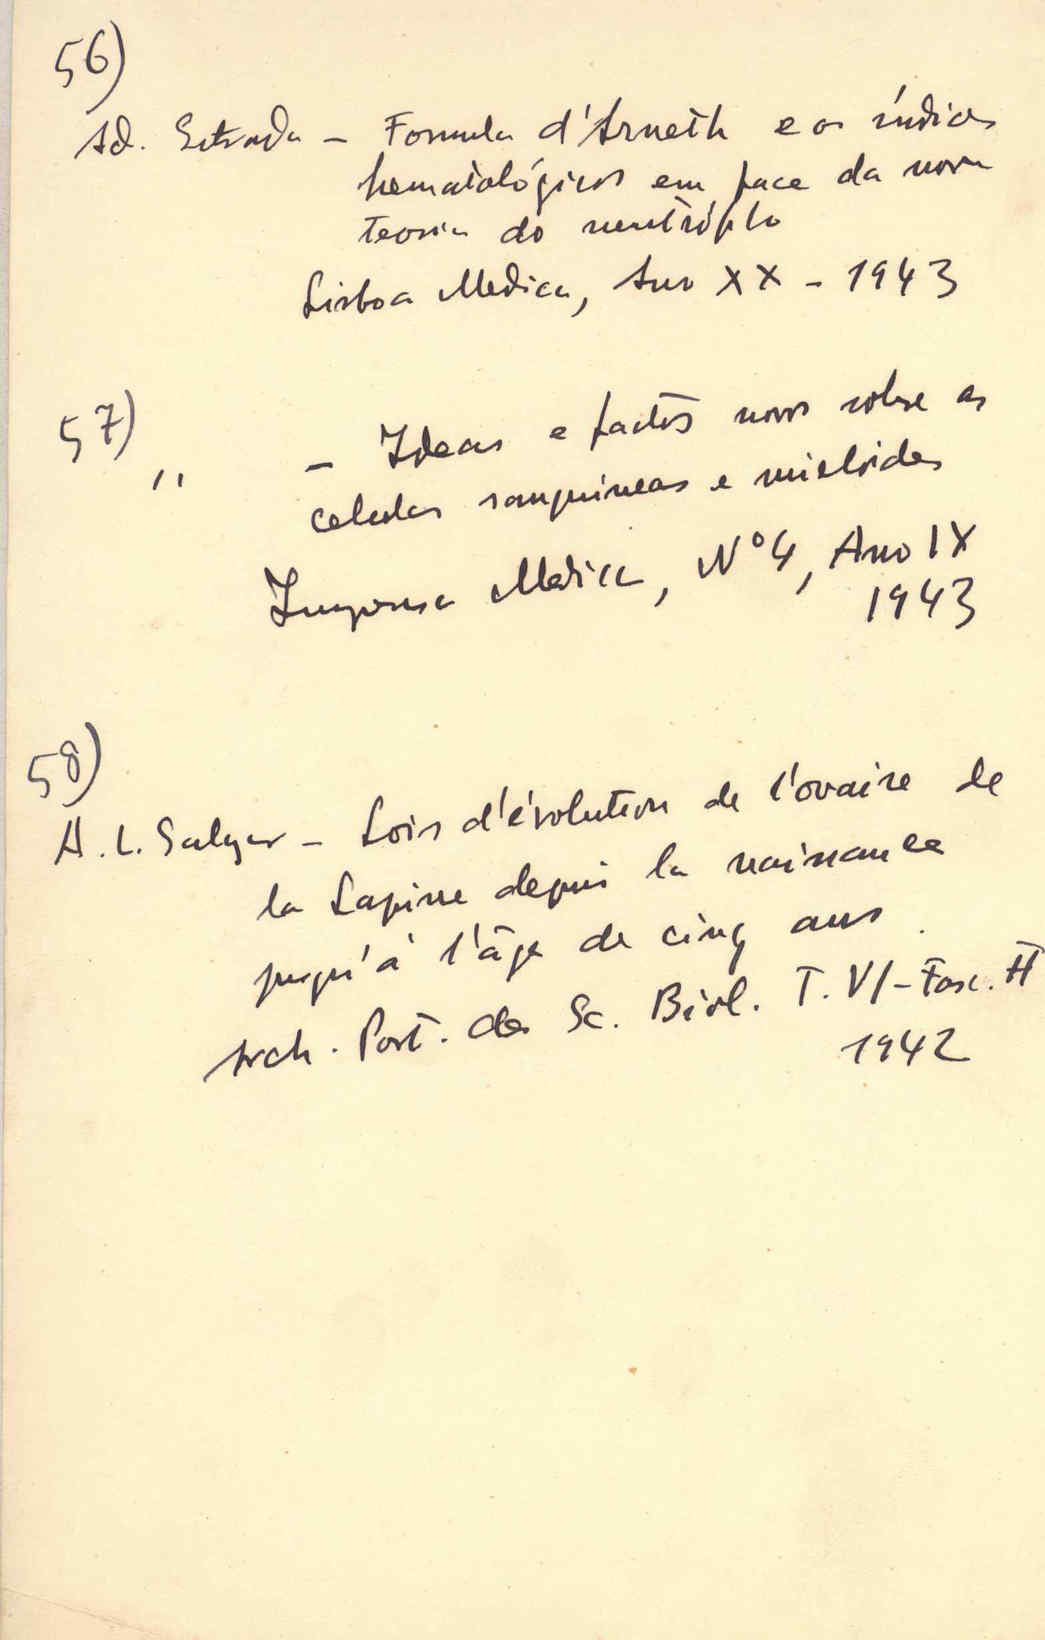 56)
Ad. Estrada – Formula d'Arneth e os índices
hematológicos em face da nova
teoria do neutrófilo
Lisboa Medica, Ano XX – 1943
57)
,, – Ideas e factos novos sobre as
celulas sanguineas e mieloides
Imprensa Medica, Nº 4, Ano IX
1943
58)
A. L. Salazar – Lois d'évolution de l'ovaire de
la Lapine depuis la naissance
jusqu'à l'âge de cinq ans.
Arch. Port. des Sc. Biol. T. VI – Fasc. II
1942